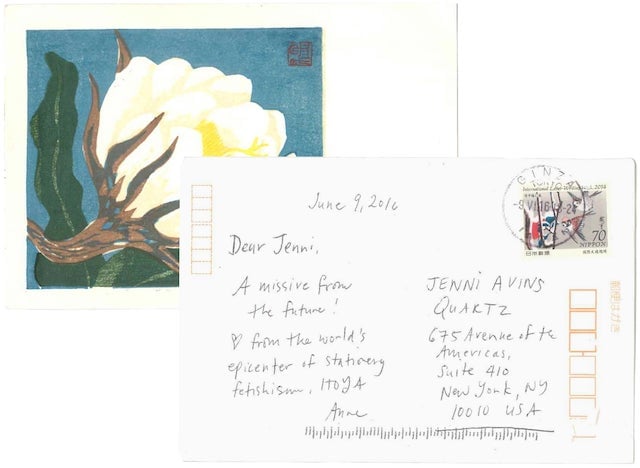 June 9, 2016
Dear Jenni,
A missive from
the future!
♡ from the world's
epicenter of stationery
fetishism, ITOYA
Anne
GINZA
-9 VI 16
International Letter Writing
2014
70
NIPPON
日本郵便
郵便はがき
JENNI AVINS
QUARTZ
675 Avenue of the
Americas,
Suite 410
New York, NY
10010 USA